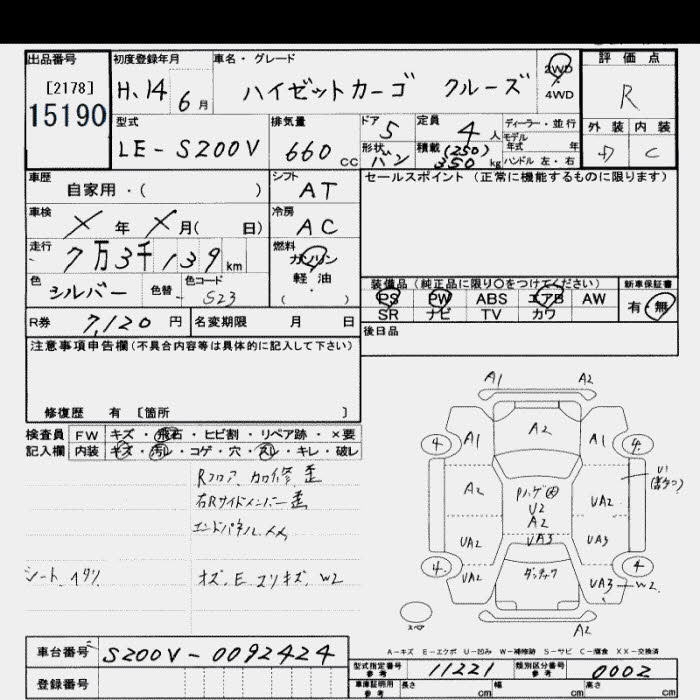 出品番号 初度登録年月 車名・グレード 2WD 評価点
[2178] H.14 6月 ハイゼットカーゴ クルーズ 4WD R
15190
型式 排気量 ドア 5 定員 4人 ディーラー・並行 外装 内装
LE-S200V 660cc 形状 バン 積載 (250) 350kg モデル年式 年 C
ハンドル 左・右
車歴 シフト セールスポイント(正常に機能するものに限ります)
自家用・( ) AT
車検 冷房
X年 X月( 日) AC
走行 燃料
7万3千139km ガソリン
軽油
( )
色 色替 色コード 装備品(純正品に限り○をつけてください) 新車保証書
シルバー - S23 PS PW ABS エアB AW 有・無
SR ナビ TV カワ
R券 7,120円 名変期限 月 日 後日品
注意事項申告欄(不具合内容等は具体的に記入して下さい)
修復歴 有 [箇所 ]
検査員 FW キズ・飛石・ヒビ割・リペア跡・×要
記入欄 内装 キズ・汚レ・コゲ・穴・スレ・キレ・破レ
Rフロア 歪
右Rサイドメンバー歪
エンドパネル XX
シート
W2
A1 A2
4 A1 A2 A1 4
A2 Pハゲ U2 UA2 U1
A2
UA2 UA3 UA3
4 UA2 UA3 W2 4
A2
スペア
A-キズ E-エクボ U-凹み W-補修跡 S-サビ C-腐食 XX-交換済
車台番号 S200V-0092424
型式指定番号 参考 11221 類別区分番号 参考 0002
登録番号
車庫証明用 参考 長さ cm 幅 cm 高さ cm